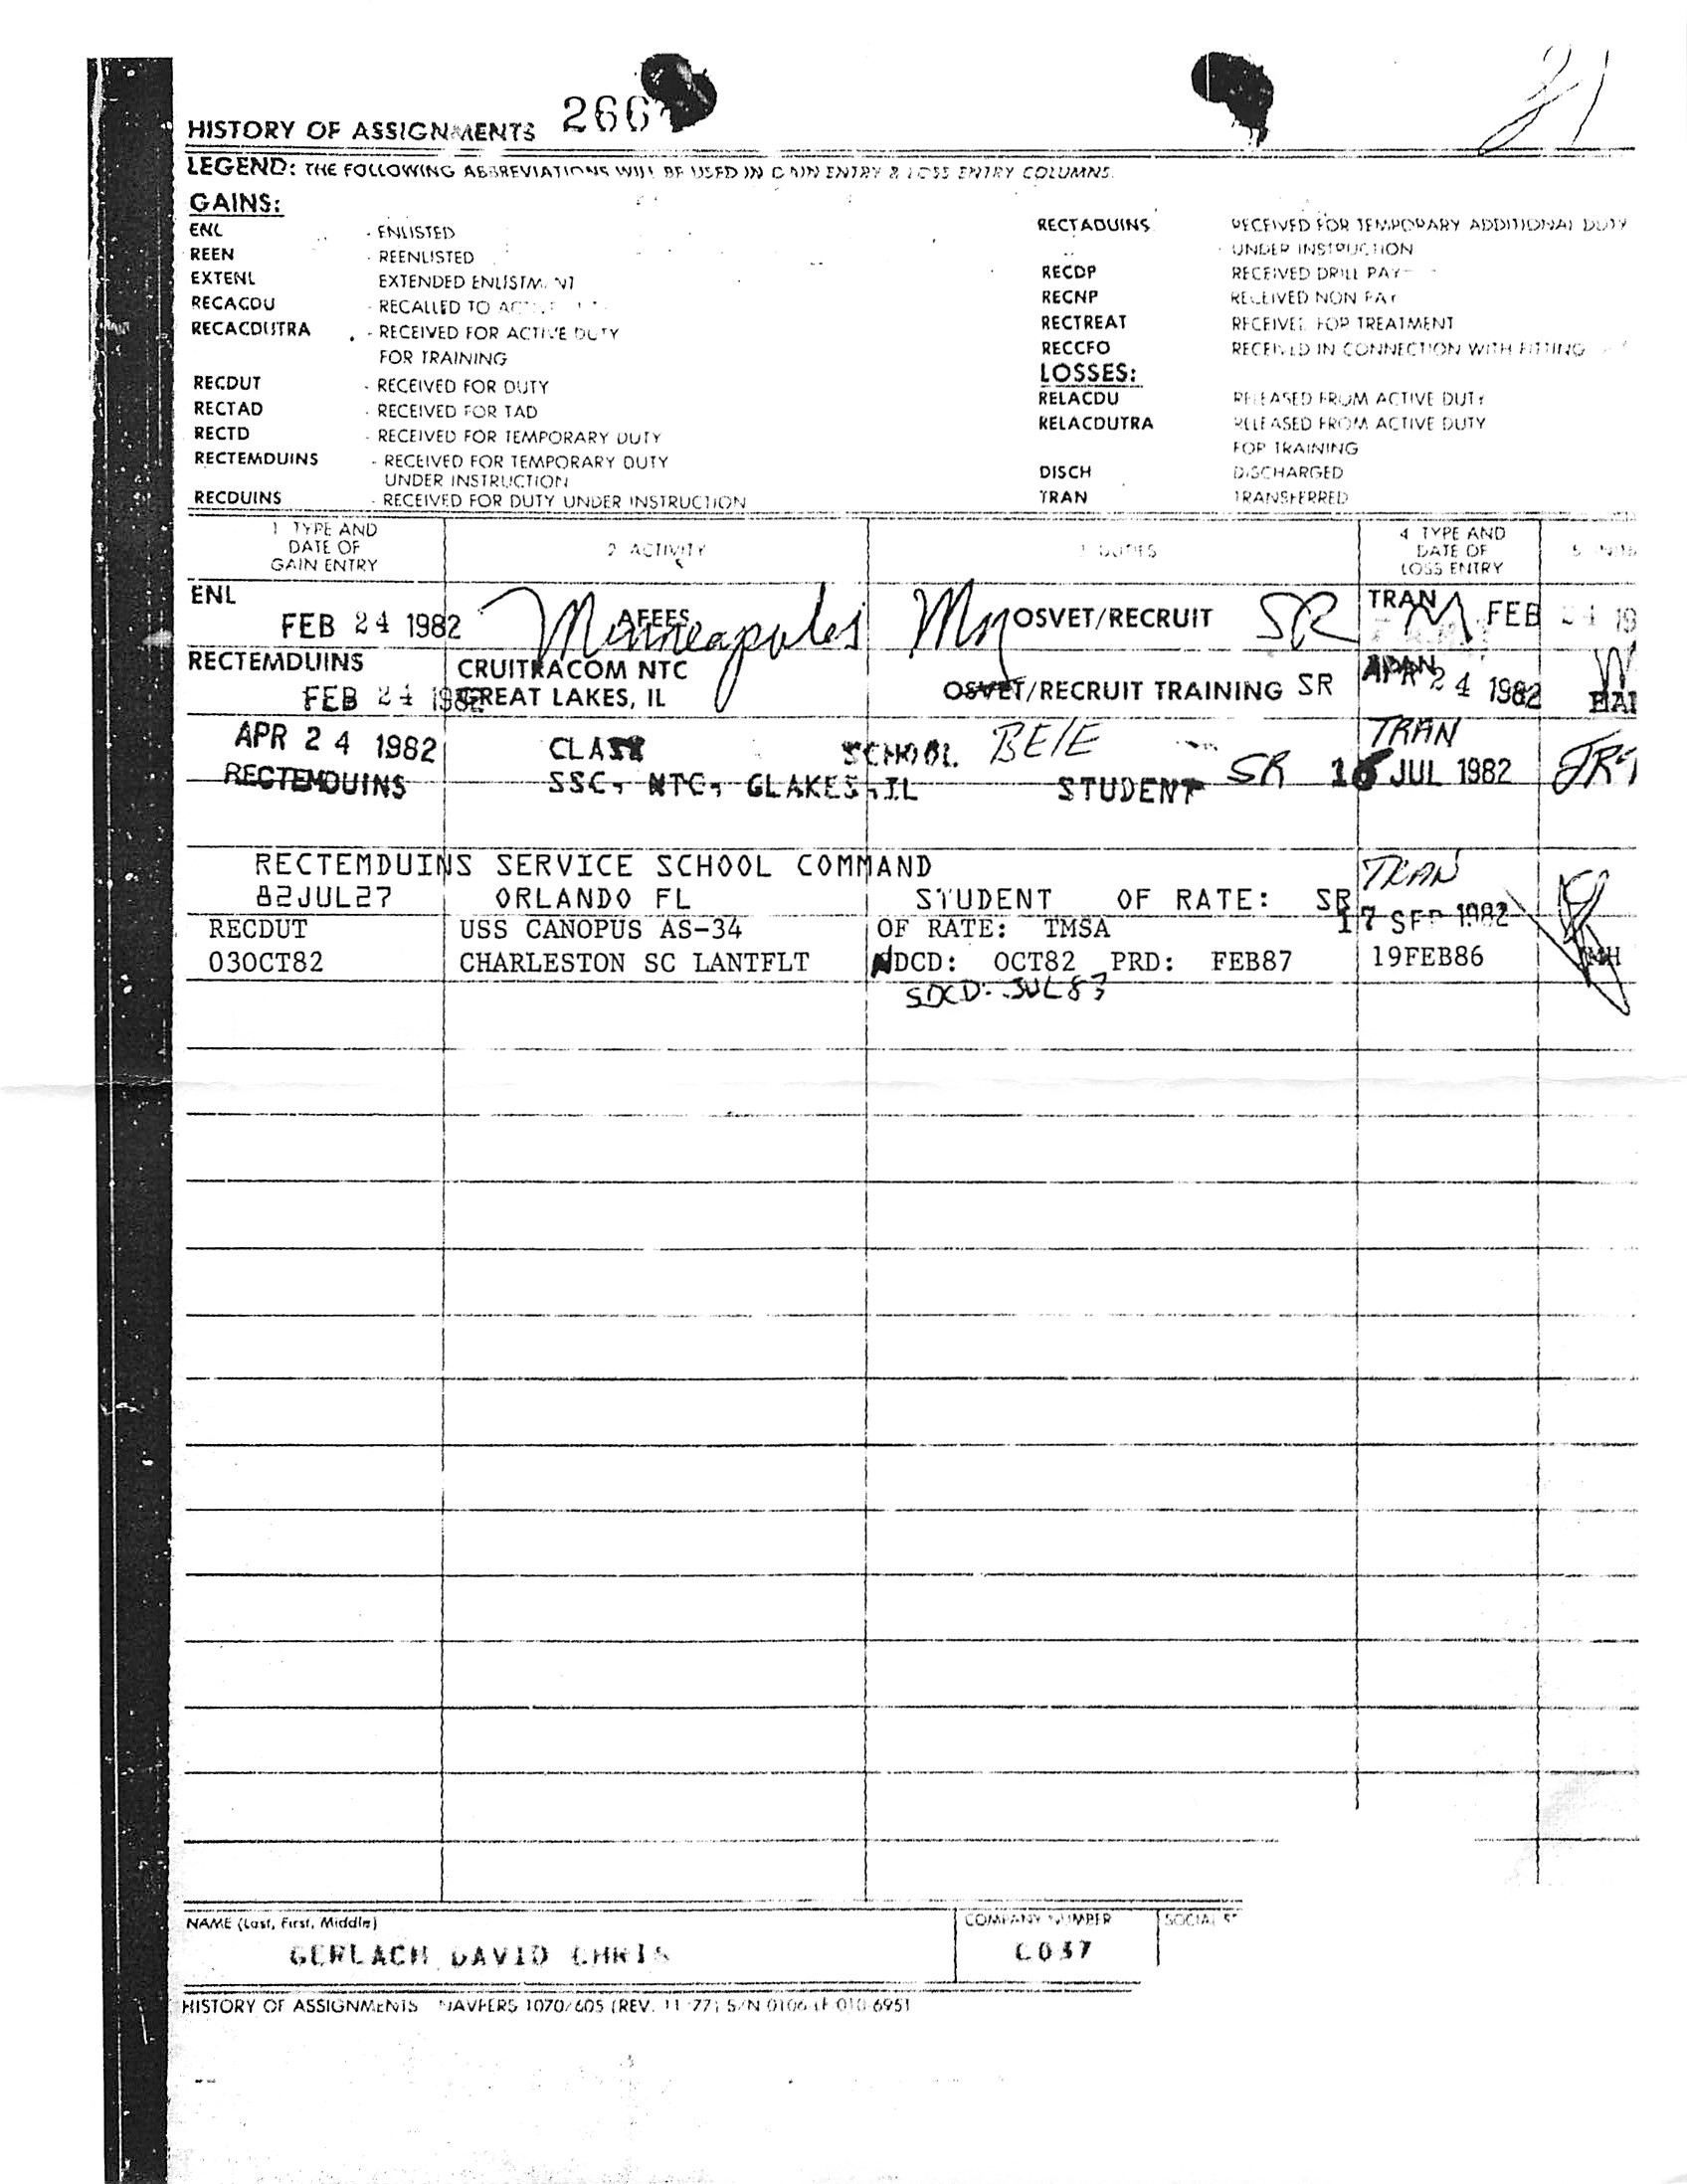 21
HISTORY OF ASSIGNMENTS 266
LEGEND: THE FOLLOWING ABBREVIATIONS WILL BE USED IN GAIN ENTRY & LOSS ENTRY COLUMNS.
GAINS:
ENL - ENLISTED
REEN - REENLISTED
EXTENL EXTENDED ENLISTMENT
RECACDU - RECALLED TO
RECACDUTRA - RECEIVED FOR ACTIVE DUTY
FOR TRAINING
RECDUT - RECEIVED FOR DUTY
RECTAD - RECEIVED FOR TAD
RECTD - RECEIVED FOR TEMPORARY DUTY
RECTEMDUINS - RECEIVED FOR TEMPORARY DUTY
UNDER INSTRUCTION
RECDUINS - RECEIVED FOR DUTY UNDER INSTRUCTION
RECTADUINS RECEIVED FOR TEMPORARY ADDITIONAL DUTY
UNDER INSTRUCTION
RECDP RECEIVED DRILL PAY
RECNP RECEIVED NON PAY
RECTREAT RECEIVED FOR TREATMENT
RECCFO RECEIVED IN CONNECTION WITH FITTING
LOSSES:
RELACDU RELEASED FROM ACTIVE DUTY
RELACDUTRA RELEASED FROM ACTIVE DUTY
FOR TRAINING
DISCH DISCHARGED
TRAN TRANSFERRED
1 TYPE AND
DATE OF
GAIN ENTRY
2 ACTIVITY
3 DUTIES
4 TYPE AND
DATE OF
LOSS ENTRY
5
ENL AFEES TRAN
FEB 24 1982 Minneapolis Mn OSVET/RECRUIT SR FEB 24 19
RECTEMDUINS CRUITRACOM NTC
FEB 24 1982 GREAT LAKES, IL OSVET/RECRUIT TRAINING SR APR 24 1982
APR 24 1982 CLASS SCHOOL BE/E TRAN
RECTEMDUINS SSC, NTC, GLAKES, IL STUDENT SR 16 JUL 1982
RECTEMDUINS SERVICE SCHOOL COMMAND TRAN
82JUL27 ORLANDO FL STUDENT OF RATE: SR 17 SEP 1982
RECDUT USS CANOPUS AS-34 OF RATE: TMSA
03OCT82 CHARLESTON SC LANTFLT NDCD: OCT82 PRD: FEB87 19FEB86 MH
SDCD: JUL83
NAME (Last, First, Middle) COMPANY NUMBER SOCIAL
GERLACH DAVID CHRIS C037
HISTORY OF ASSIGNMENTS NAVPERS 1070/605 (REV. 11-77) S/N 0106-LF-010-6951